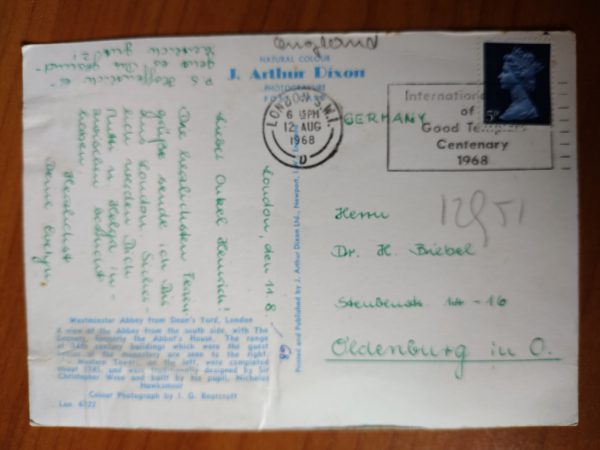 England
NATURAL COLOUR
J. Arthur Dixon
PHOTOGRAPHIC
LONDON S.W.1.
6 PM
12 AUG
1968
D
5D
International
of
Good Templars
Centenary
1968
GERMANY
Herrn
Dr. H. Biebel
Oldenburg in O.
London, den 11.8.
68
Lieber Onkel Heinrich!
Die herzlichsten Ferien-
grüße sende ich Dir
aus London. Sicher-
lich werden Dich
Mutti u. Helga in-
zwischen besucht
haben.
Herzlichst
Deine Evelyn
P.S. Hoffentlich
geht es Dir gesund-
heitlich gut!
Printed and Published by J. Arthur Dixon Ltd., Newport,
Westminster Abbey from Dean's Yard, London
A view of the Abbey from the south side, with The
Deanery, formerly the Abbot's House. The range
of 14th century buildings which were the guest
houses of the monastery are seen to the right.
The Western Towers, on the left, were completed
about 1745, and were traditionally designed by Sir
Christopher Wren and built by his pupil, Nicholas
Hawksmoor
Colour Photograph by
Lon. 6722